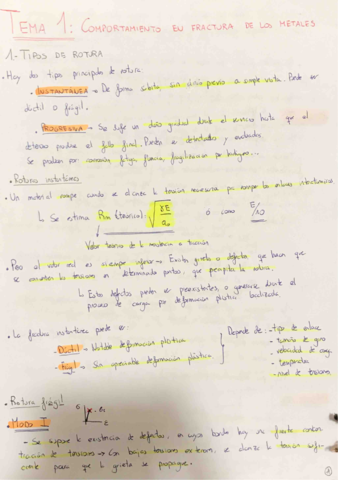 TEMA 1: COMPORTAMIENTO EN FRACTURA DE LOS METALES
1.- TIPOS DE ROTURA
• Hay dos tipos principales de rotura
• INSTANTÁNEA → De forma súbita, sin daño previo a simple vista. Puede ser
dúctil o frágil.
• PROGRESIVA → Se sufre un daño gradual durante el servicio hasta que el
deterioro produce el fallo final. Pueden ser detectados y evaluados.
Se producen por corrosión, fatiga, fluencia, fragilización por hidrógeno...
• Rotura instantánea
• Un material rompe cuando se alcanza la tensión necesaria para romper los enlaces interatómicos
↳ Se estima Rm (teórica): √(γE/a₀) ó como E/10
Valor teórico de la resistencia a tracción
• Pero el valor real es siempre inferior → Existen grietas o defectos que hacen que
se concentren las tensiones en determinados puntos, que propician la rotura.
↳ Estos defectos pueden ser preexistentes, o generarse durante el
proceso de carga por deformación plástica localizada
• La fractura instantánea puede ser:
- Dúctil → Notable deformación plástica
- Frágil → Sin apreciable deformación plástica
Depende de: - tipo de enlace
- tamaño de grano
- velocidad de carga
- temperatura
- nivel de tensiones
• Rotura frágil
• MODO I
- Se supone la existencia de defectos, en cuyo borde hay una fuerte concen-
tración de tensiones → Con bajas tensiones exteriores, se alcanza la tensión sufi-
ciente para que la grieta se propague.